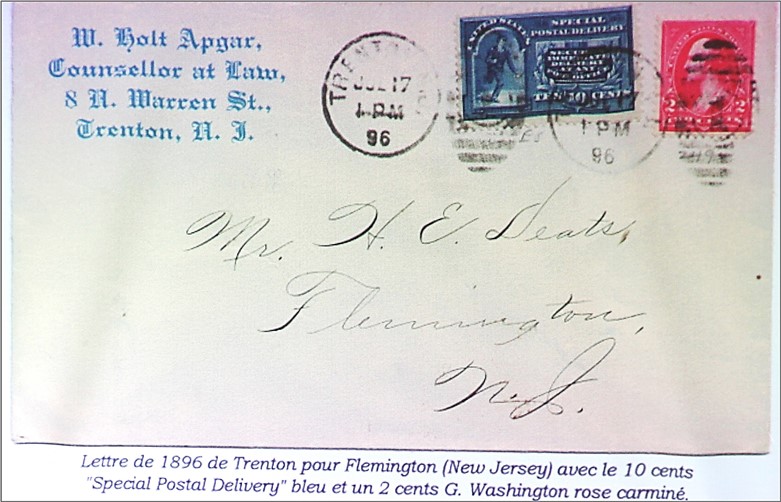 W. Holt Apgar,
Counsellor at Law,
8 N. Warren St.,
Trenton, N. J.
TRENTON
JUL 17
1 PM
96
UNITED STATES
SPECIAL
POSTAL DELIVERY
SECURES
IMMEDIATE
DELIVERY
AT ANY
POST OFFICE
TEN 10 CENTS
17
1 PM
96
2 2
Mr. H. E. Deats,
Flemington,
N. J.
Lettre de 1896 de Trenton pour Flemington (New Jersey) avec le 10 cents
"Special Postal Delivery" bleu et un 2 cents G. Washington rose carminé.